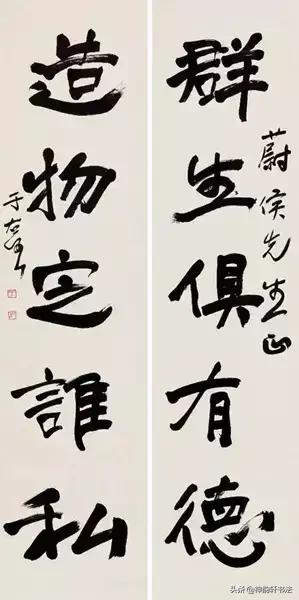 群生俱有德
蔚侯先生正
造物定誰私
于右任
头条@神韵轩书法